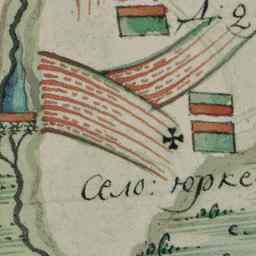 Д: 2
Село: юрке